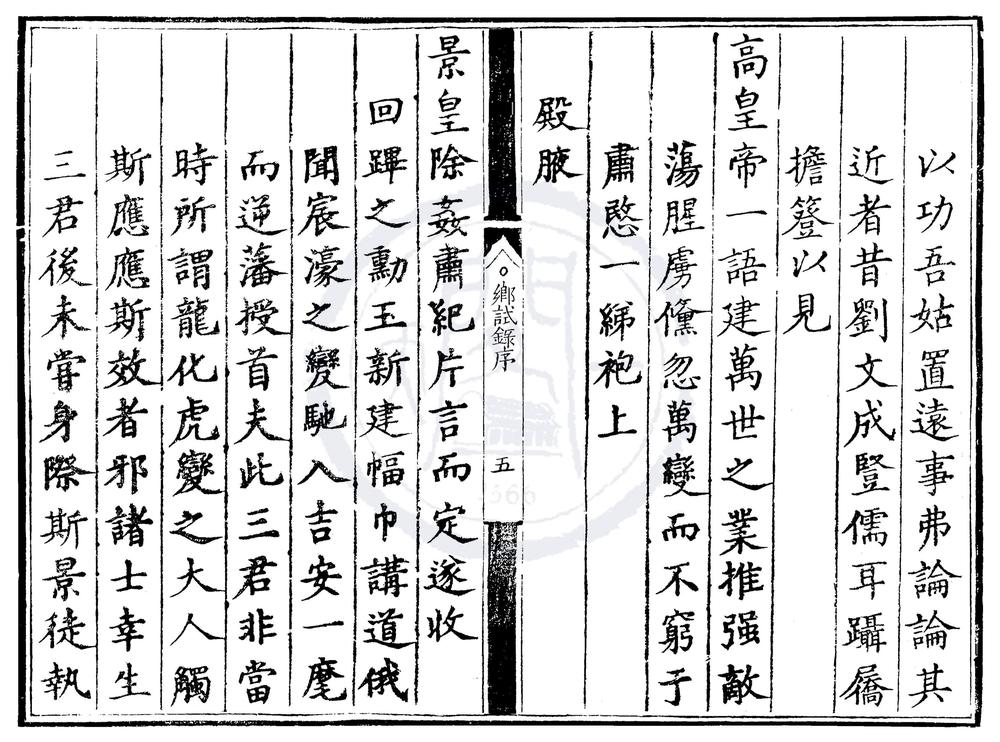 以功吾姑置遠事弗論論其
近者昔劉文成豎儒耳躡屩
擔簦以見
高皇帝一語建萬世之業推强敵
蕩腥虜儵忽萬變而不窮于
肅愍一綈袍上
殿腋
鄉試錄序
五
景皇除姦肅紀片言而定遂收
回蹕之勳王新建幅巾講道俄
聞宸濠之變馳入吉安一麾
而逆藩授首夫此三君非當
時所謂龍化虎變之大人觸
斯應應斯效者邪諸士幸生
三君後未嘗身際斯景徒執